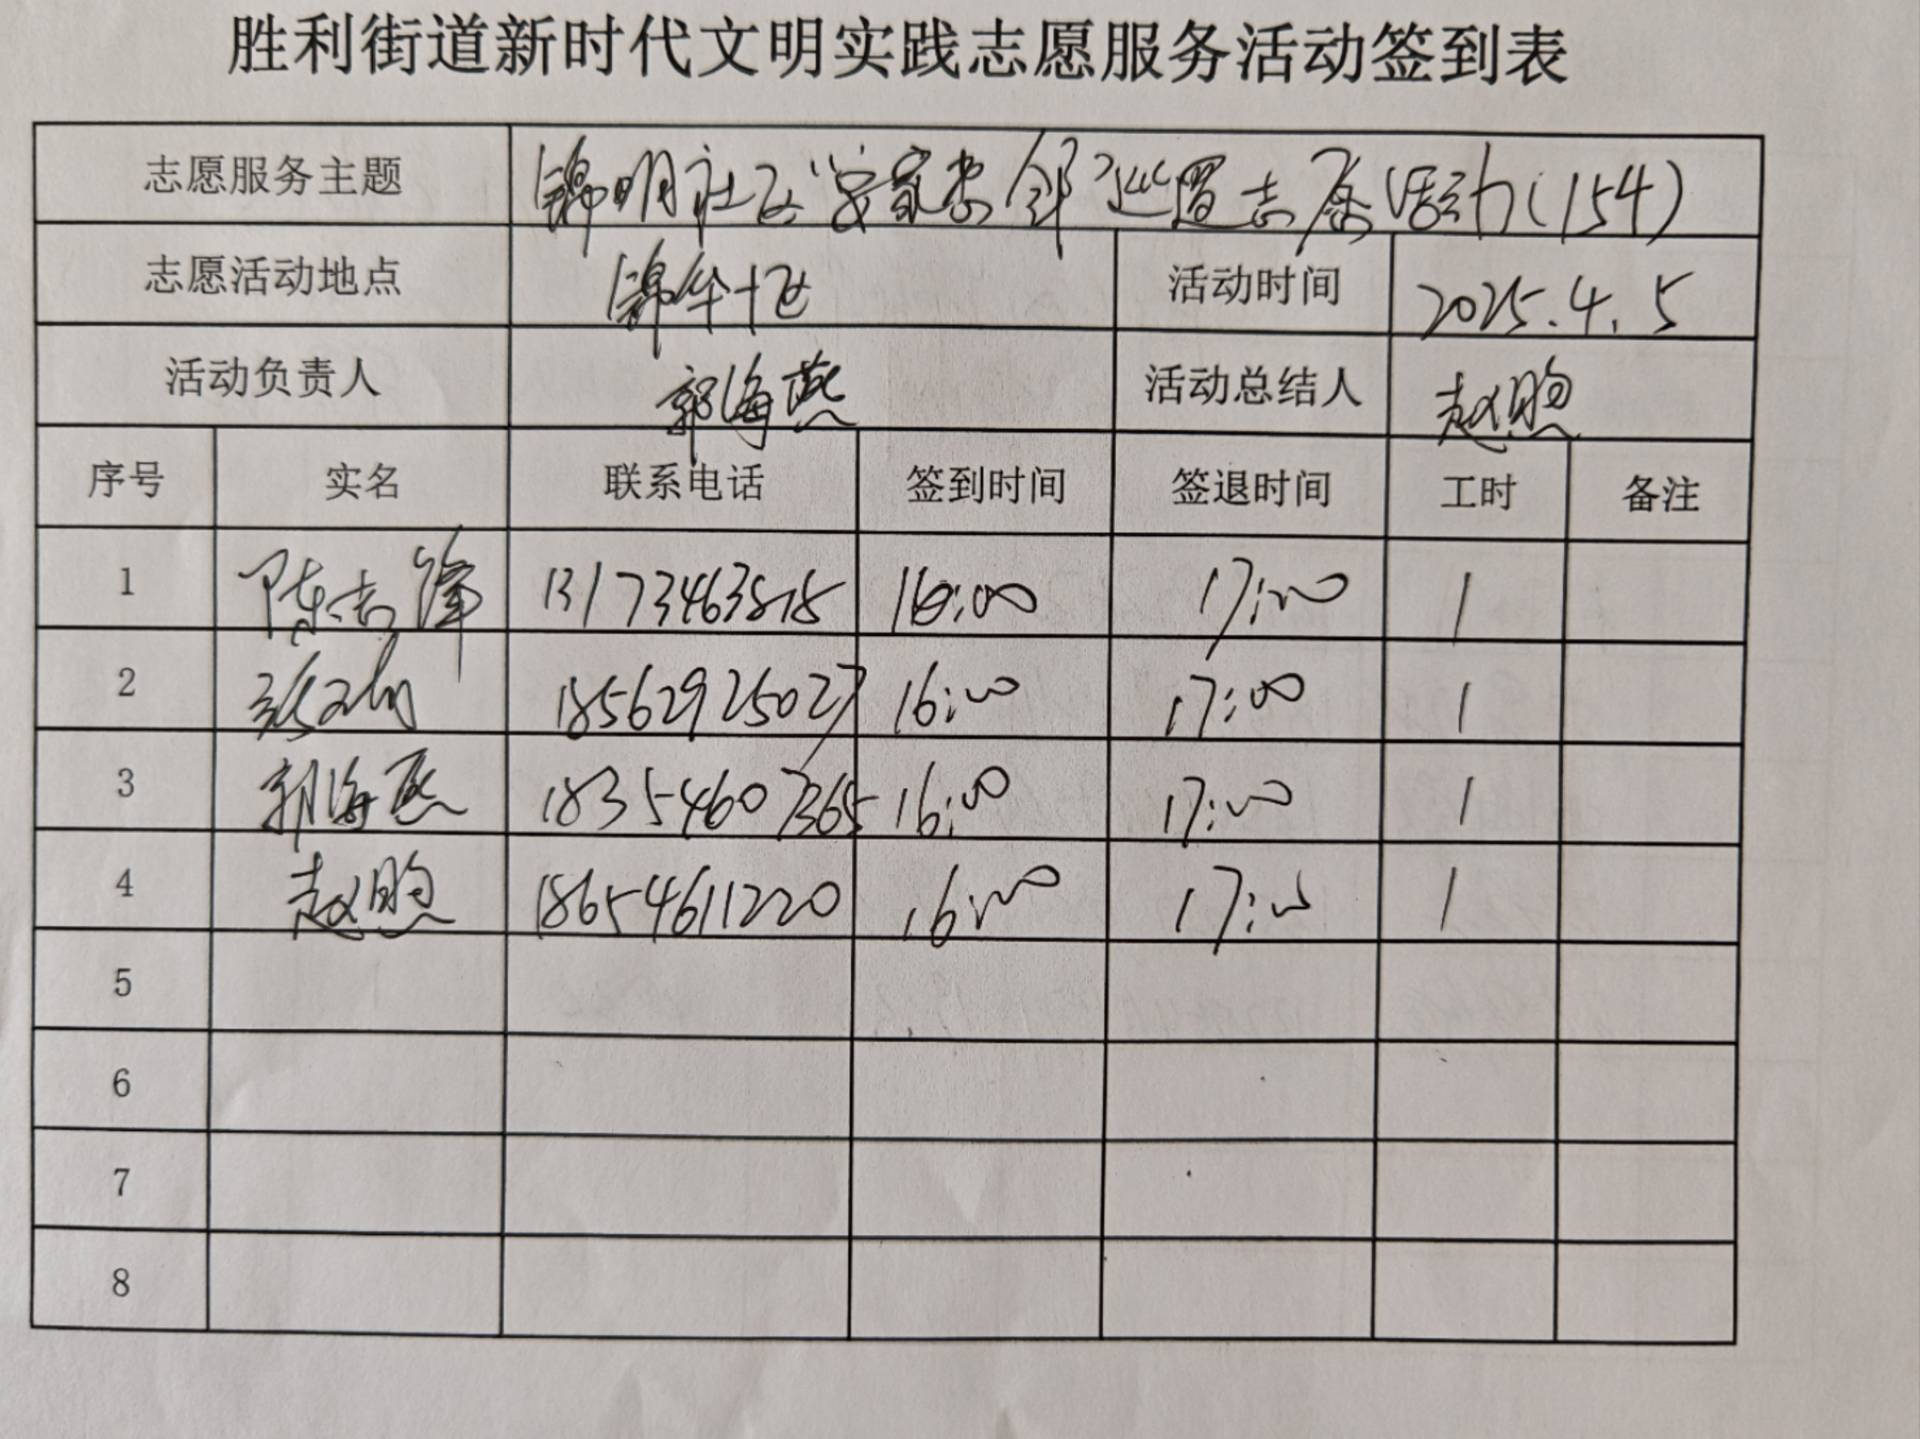 胜利街道新时代文明实践志愿服务活动签到表
志愿服务主题 锦明社区"安家惠邻"巡逻志愿活动(154)
志愿活动地点 锦华十区 活动时间 2025.4.5
活动负责人 郭海燕 活动总结人 赵煦
序号 实名 联系电话 签到时间 签退时间 工时 备注
1 陈志锋 16:00 17:00 1
2 18562925027 16:00 17:00 1
3 郭海燕 18354607365 16:00 17:00 1
4 赵煦 18654611220 16:00 17:00 1
5
6
7
8